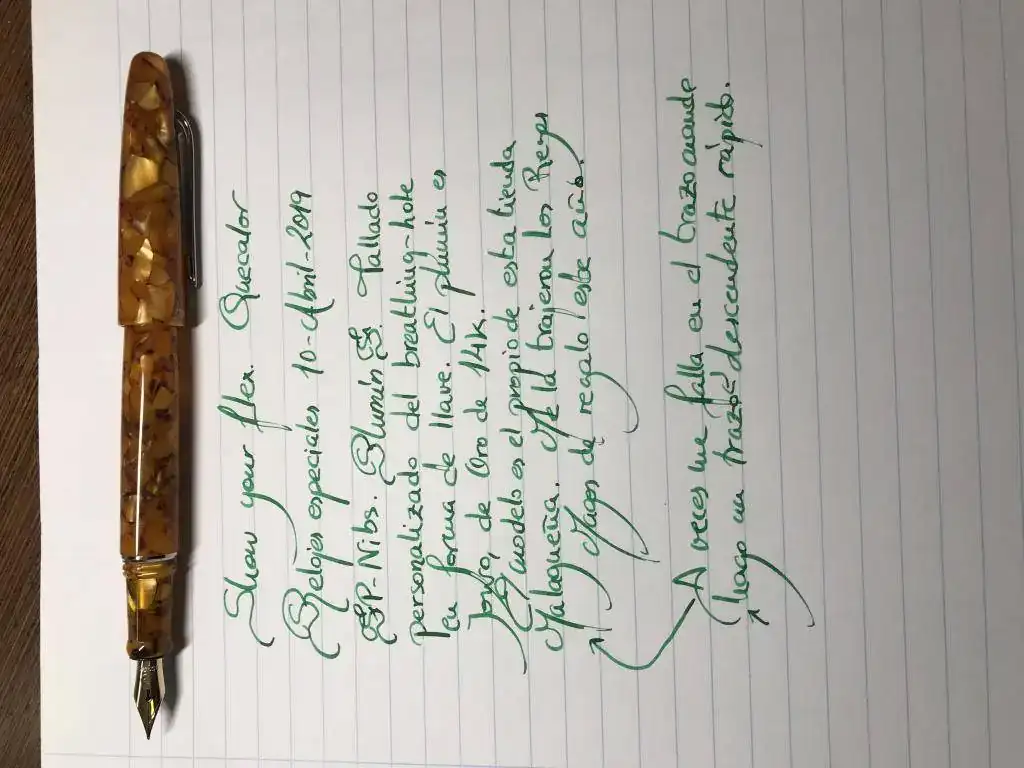 Show your flex. Quecalor
Relojes especiales 10-Abril-2019
FP-Nibs. Plumín EF. Tallado
personalizado del breathing-hole
en forma de llave. El plumín es
de Oro de 14K.
El modelo es el propio de esta tienda
Malagueña. Me la trajeron los Reyes
Magos de regalo este año.
A veces me falla en el trazo cuando
hago un trazo descendente rápido.